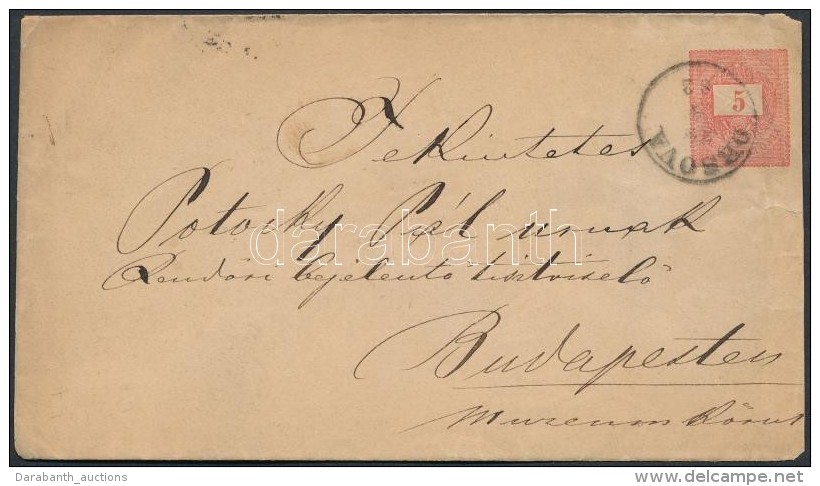 5
ORSOVA
Tekintetes
Potocky Pál urnak
Rendőri bejelentő tisztviselő
Budapesten
Muzeum Körut
darabanth
Darabanth_auctions
delcampe.net